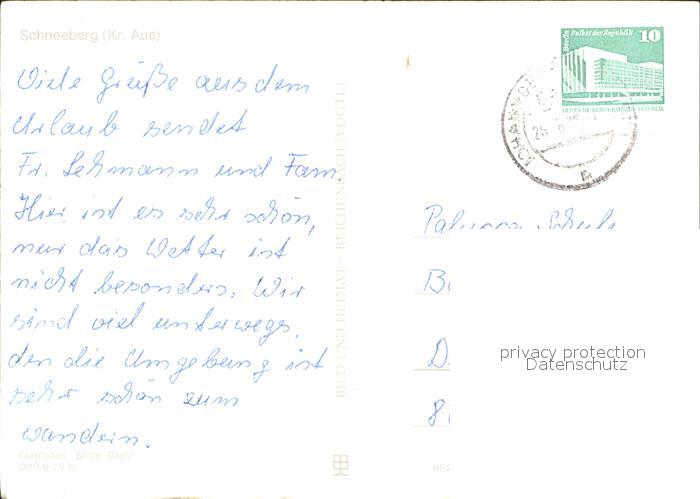 Schneeberg (Kr. Aue)
Viele Grüße aus dem
Urlaub sendet
Fr. Lehmann und Fam.
Hier ist es sehr schön,
nur das Wetter ist
nicht besonders. Wir
sind viel unterwegs,
den die Umgebung ist
sehr schön zum
wandern.
DDR 0,20 M
BILD UND HEIMAT · REICHENBACH (VOGTL)
Berlin Palast der Republik 10
DEUTSCHE DEMOKRATISCHE REPUBLIK
privacy protection
Datenschutz